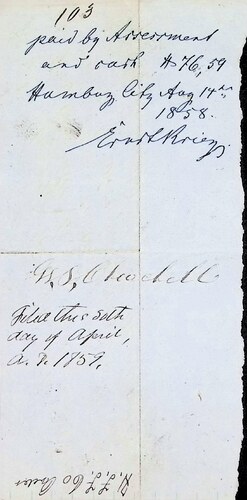 103
paid by Assessment
and cash $76,59
Humbug City Aug 14th
1858.
Ernst Krieg
Filed this 30th
day of April,
A.D. 1859.